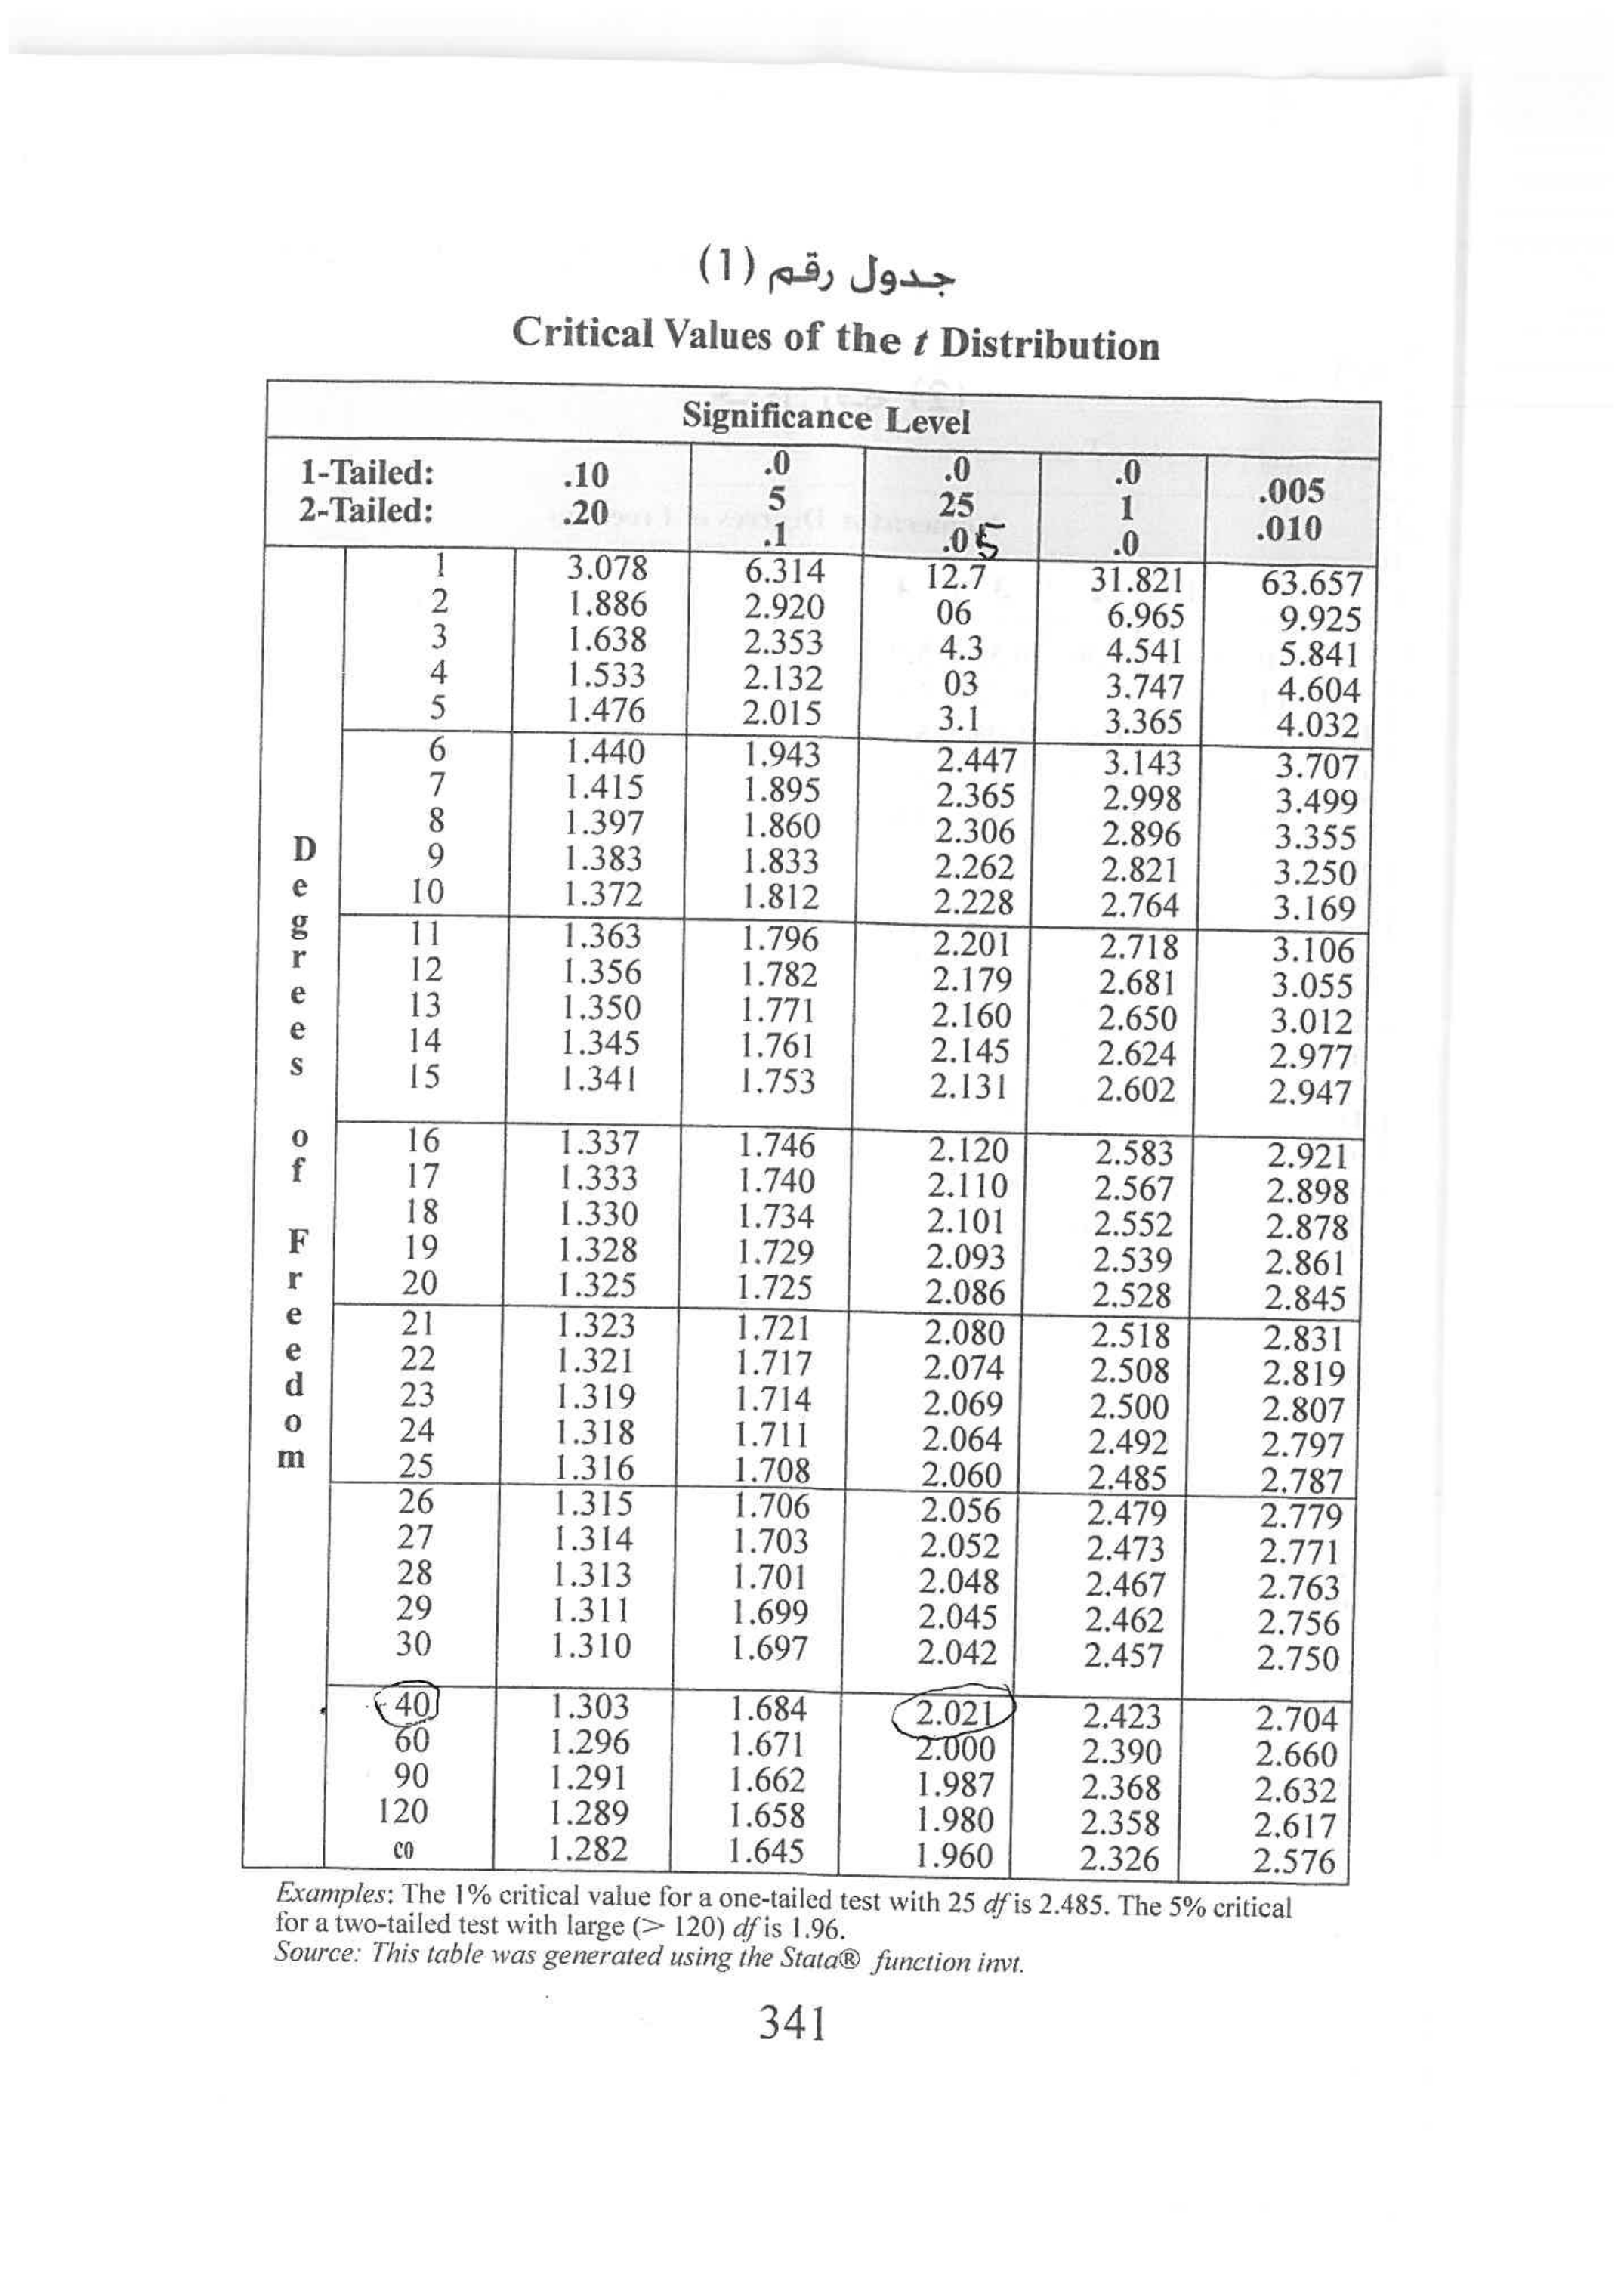 جدول رقم (1)
Critical Values of the t Distribution
Significance Level
1-Tailed: .10 .0 .0 .0 .005
2-Tailed: .20 5 25 1 .010
.1 .05 .0
Degrees of Freedom
1 3.078 6.314 12.7 31.821 63.657
2 1.886 2.920 06 6.965 9.925
3 1.638 2.353 4.3 4.541 5.841
4 1.533 2.132 03 3.747 4.604
5 1.476 2.015 3.1 3.365 4.032
6 1.440 1.943 2.447 3.143 3.707
7 1.415 1.895 2.365 2.998 3.499
8 1.397 1.860 2.306 2.896 3.355
9 1.383 1.833 2.262 2.821 3.250
10 1.372 1.812 2.228 2.764 3.169
11 1.363 1.796 2.201 2.718 3.106
12 1.356 1.782 2.179 2.681 3.055
13 1.350 1.771 2.160 2.650 3.012
14 1.345 1.761 2.145 2.624 2.977
15 1.341 1.753 2.131 2.602 2.947
16 1.337 1.746 2.120 2.583 2.921
17 1.333 1.740 2.110 2.567 2.898
18 1.330 1.734 2.101 2.552 2.878
19 1.328 1.729 2.093 2.539 2.861
20 1.325 1.725 2.086 2.528 2.845
21 1.323 1.721 2.080 2.518 2.831
22 1.321 1.717 2.074 2.508 2.819
23 1.319 1.714 2.069 2.500 2.807
24 1.318 1.711 2.064 2.492 2.797
25 1.316 1.708 2.060 2.485 2.787
26 1.315 1.706 2.056 2.479 2.779
27 1.314 1.703 2.052 2.473 2.771
28 1.313 1.701 2.048 2.467 2.763
29 1.311 1.699 2.045 2.462 2.756
30 1.310 1.697 2.042 2.457 2.750
40 1.303 1.684 2.021 2.423 2.704
60 1.296 1.671 2.000 2.390 2.660
90 1.291 1.662 1.987 2.368 2.632
120 1.289 1.658 1.980 2.358 2.617
co 1.282 1.645 1.960 2.326 2.576
Examples: The 1% critical value for a one-tailed test with 25 df is 2.485. The 5% critical
for a two-tailed test with large (> 120) df is 1.96.
Source: This table was generated using the Stata® function invt.
341